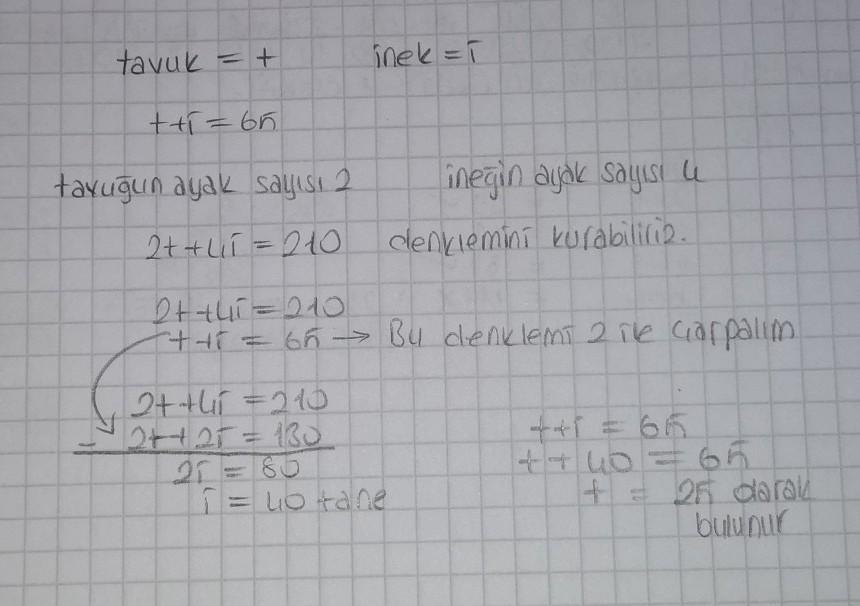 tavuk = t inek = i
t+i = 65
tavuğun ayak sayısı 2 ineğin ayak sayısı 4
2t+4i = 210 denklemini kurabiliriz.
2t+4i = 210
t+i = 65 → Bu denklemi 2 ile çarpalım
2t+4i = 210
- 2t+2i = 130
2i = 80
i = 40 tane
t+i = 65
t+40 = 65
t = 25 olarak
bulunur